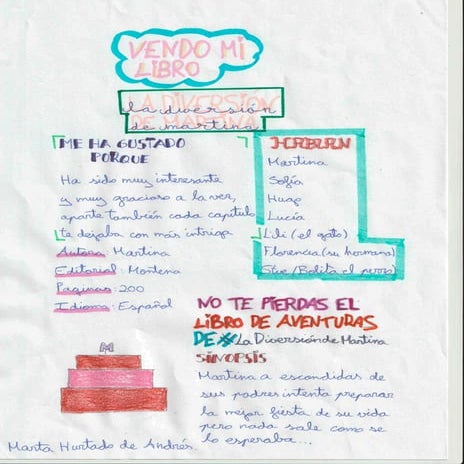 VENDO MI
LIBRO
LA DIVERSIÓN
DE MARTINA
la diversión
de martina
ME HA GUSTADO
PORQUE
Ha sido muy interesante
y muy gracioso a la ver,
aparte también cada capítulo
te dejaba con más intriga
Autora: Martina
Editorial: Montena
Páginas: 200
Idioma: Español
Martina
Sofía
Hugo
Lucía
Lili (el gato)
Florencia (su hermana)
Sue/Bolita el perro)
NO TE PIERDAS EL
LIBRO DE AVENTURAS
DE La Diversión de Martina
SINOPSIS
Martina a escondidas de
sus padres intenta preparar
la mejor fiesta de su vida
pero nada sale como se
lo esperaba...
M
Marta Hurtado de Andrés.